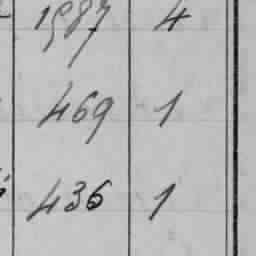 1987 4
469 1
436 1